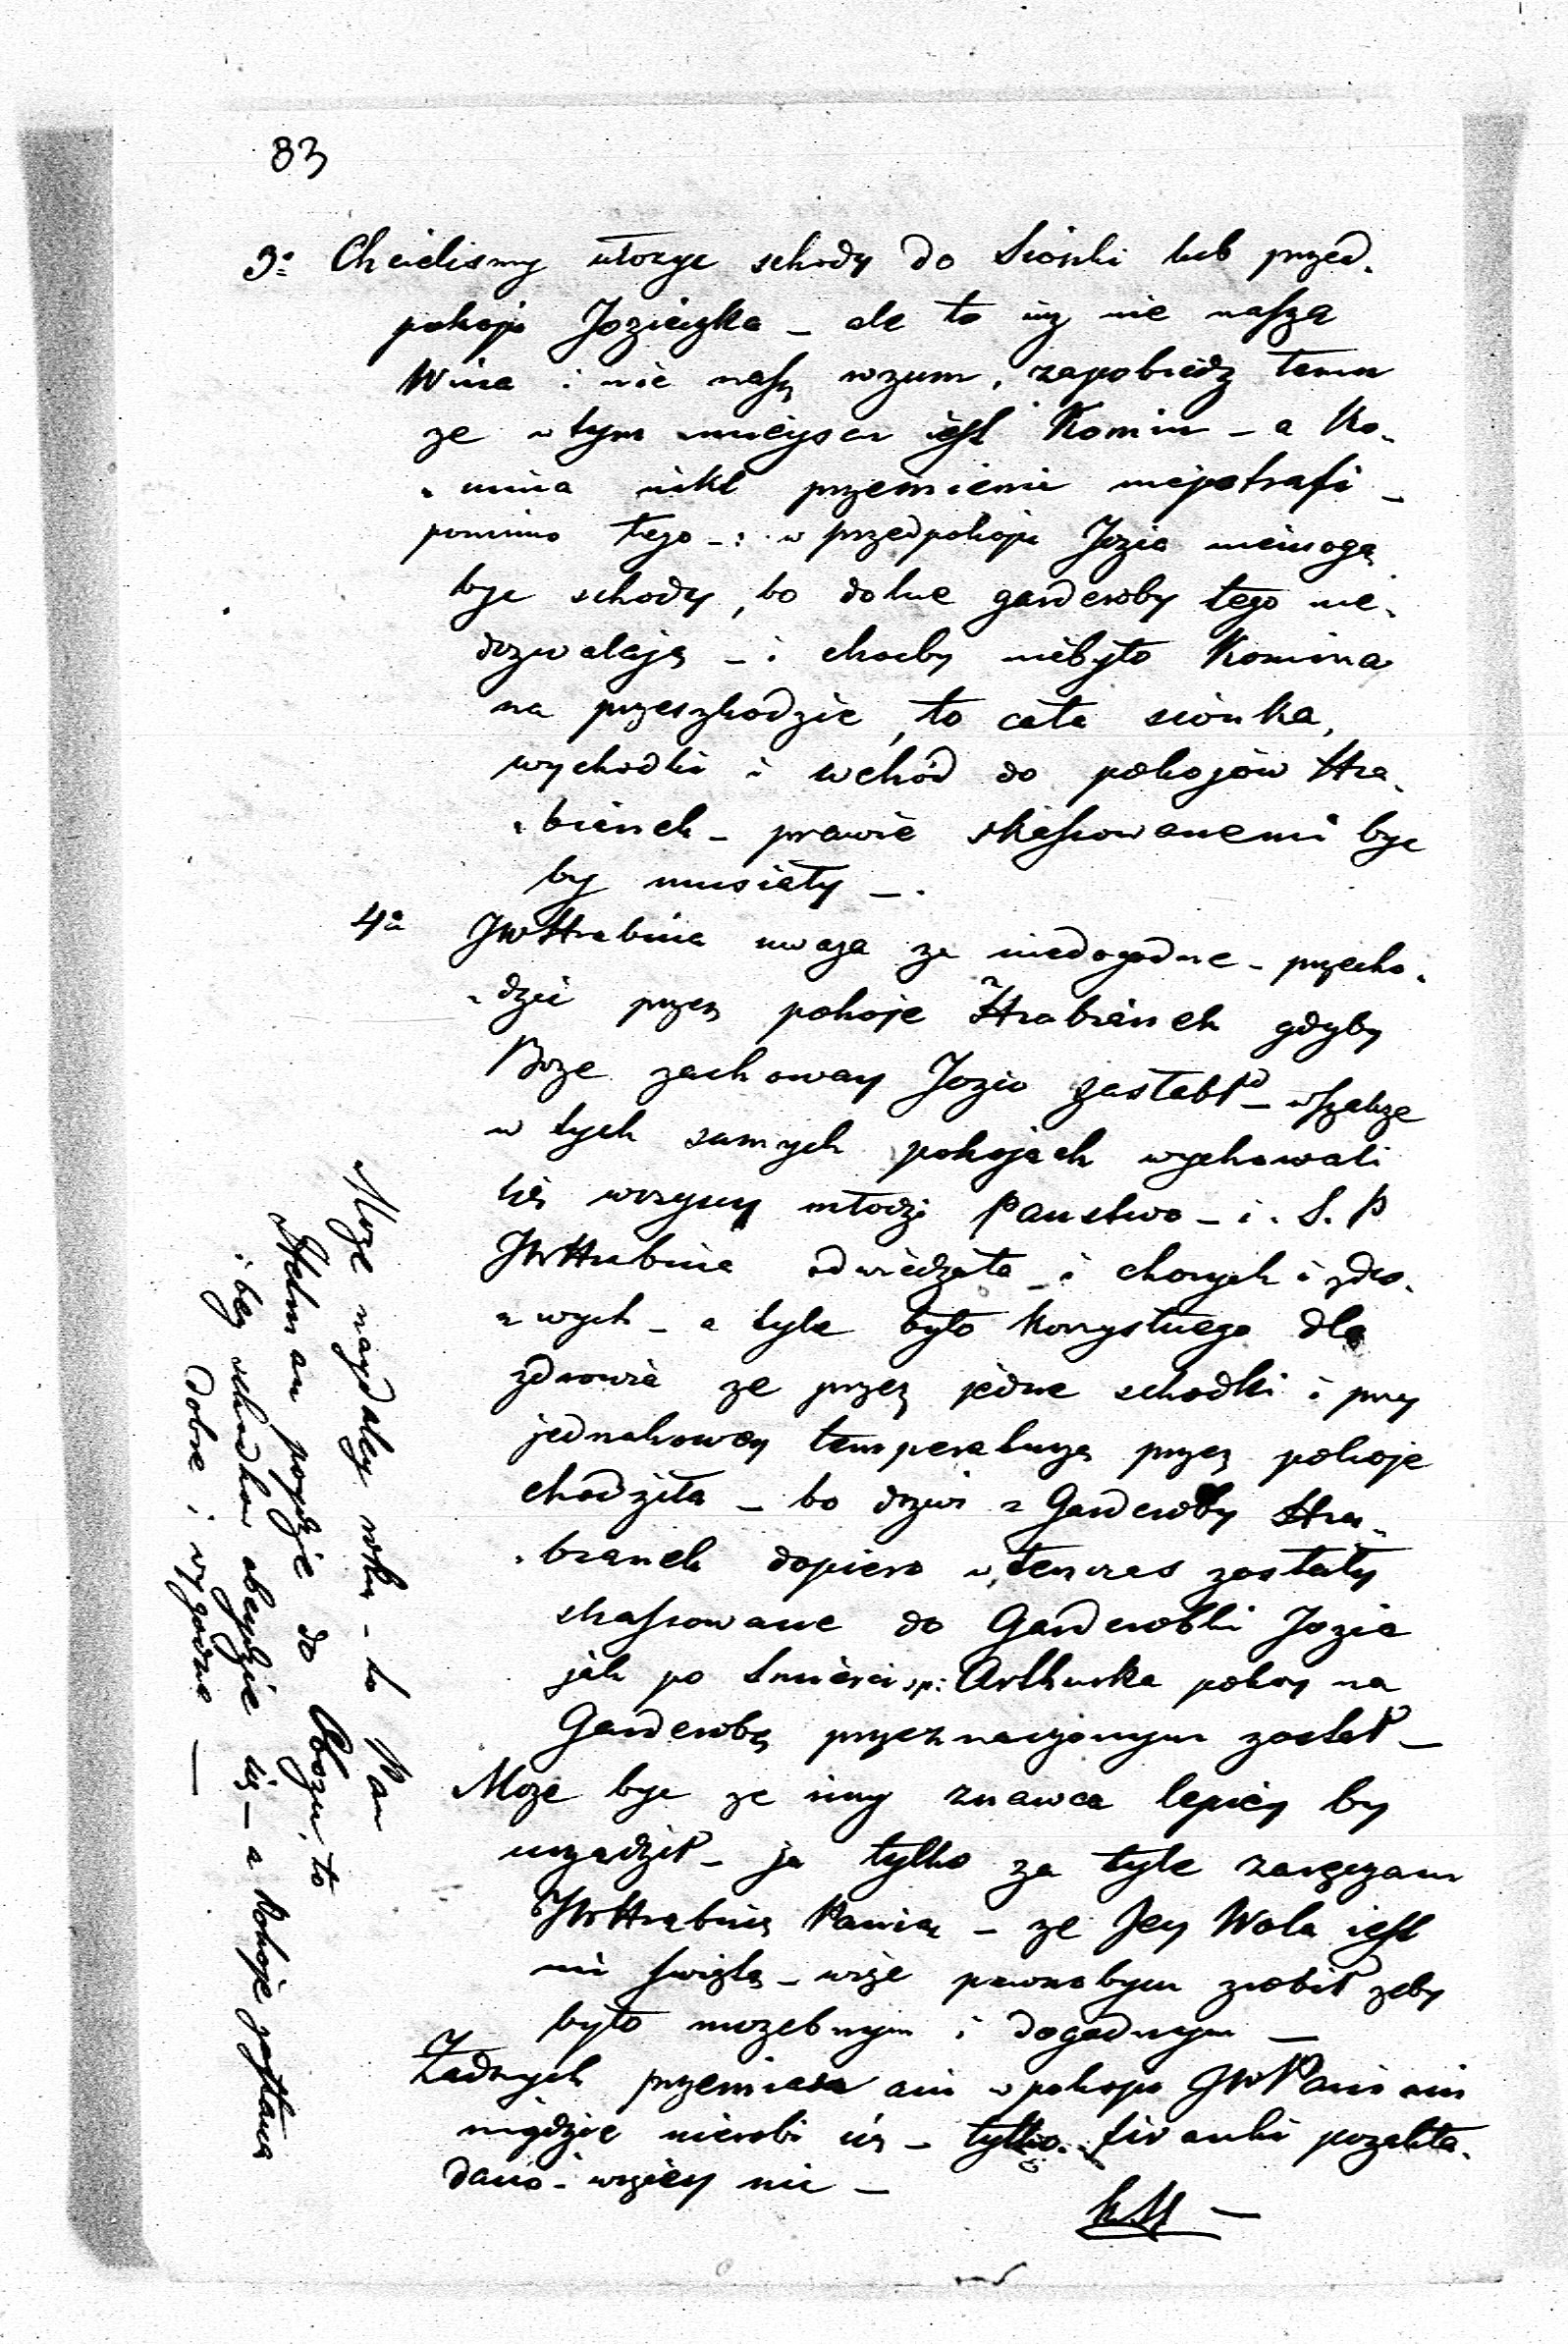 83
3° Chcielismy utozyc schody do Sionki lub przed-
pokoju Jozieczka – ale to iuz nie nasza
Wina i nie nasz rozum, zapobiedz temu
ze w tym mieyscu iest Komin – a Ko-
mina nikt przemienic niepotrafi –
pomimo tego –: w przedpokoju Jozia niemogą
byc schody, bo dolne garderoby tego nie-
dozwalają – i chocby niebyło Komina
na przeszkodzie, to cała sionka,
wychodki i wchód do pokojów Hra-
bianek – prawie skassowanemi byc
by musiały –.
4° JWHrabina uwaza ze niedogodne – przecho-
dzic przez pokoje Hrabianek gdyby
Boze zachoway Jozio zasłabł – wszakze
w tych samych pokojach wychowali
się wszyscy młodzi Panstwo – i. S. P
JWHrabina odwiedzała – i chorych i zdro-
wych – a tyle było korzystnego dla
zdrowia ze przez jedne schodki i przy
jednakowey temperaturze przez pokoje
chodziła – bo drzwi z Garderoby Hra-
bianek dopiero wtenczas zostały
skassowane do Garderobki Jozia
jak po Smierci sp: Arthurka pokoy na
Garderobę przeznaczonym został –
Moze byc ze inny znawca lepiey by
urządził – ja tylko za tyle zaręczam
JWHrabinę Panią – ze Jey Wola iest
mi swiętą – więc pewnobym zrobił zeby
było mozebnym i dogodnym –
Zadnych przemian ani w pokoju JWPani ani
nigdzie nierobi się – tylko firanki pozakła-
dano – więcey nic –
Moze naydaley roku – to Pan
Hetman poydzie do Obozu, to
i bez schodków obeydzie się – a Pokoje zostaną
dobre i wygodne –